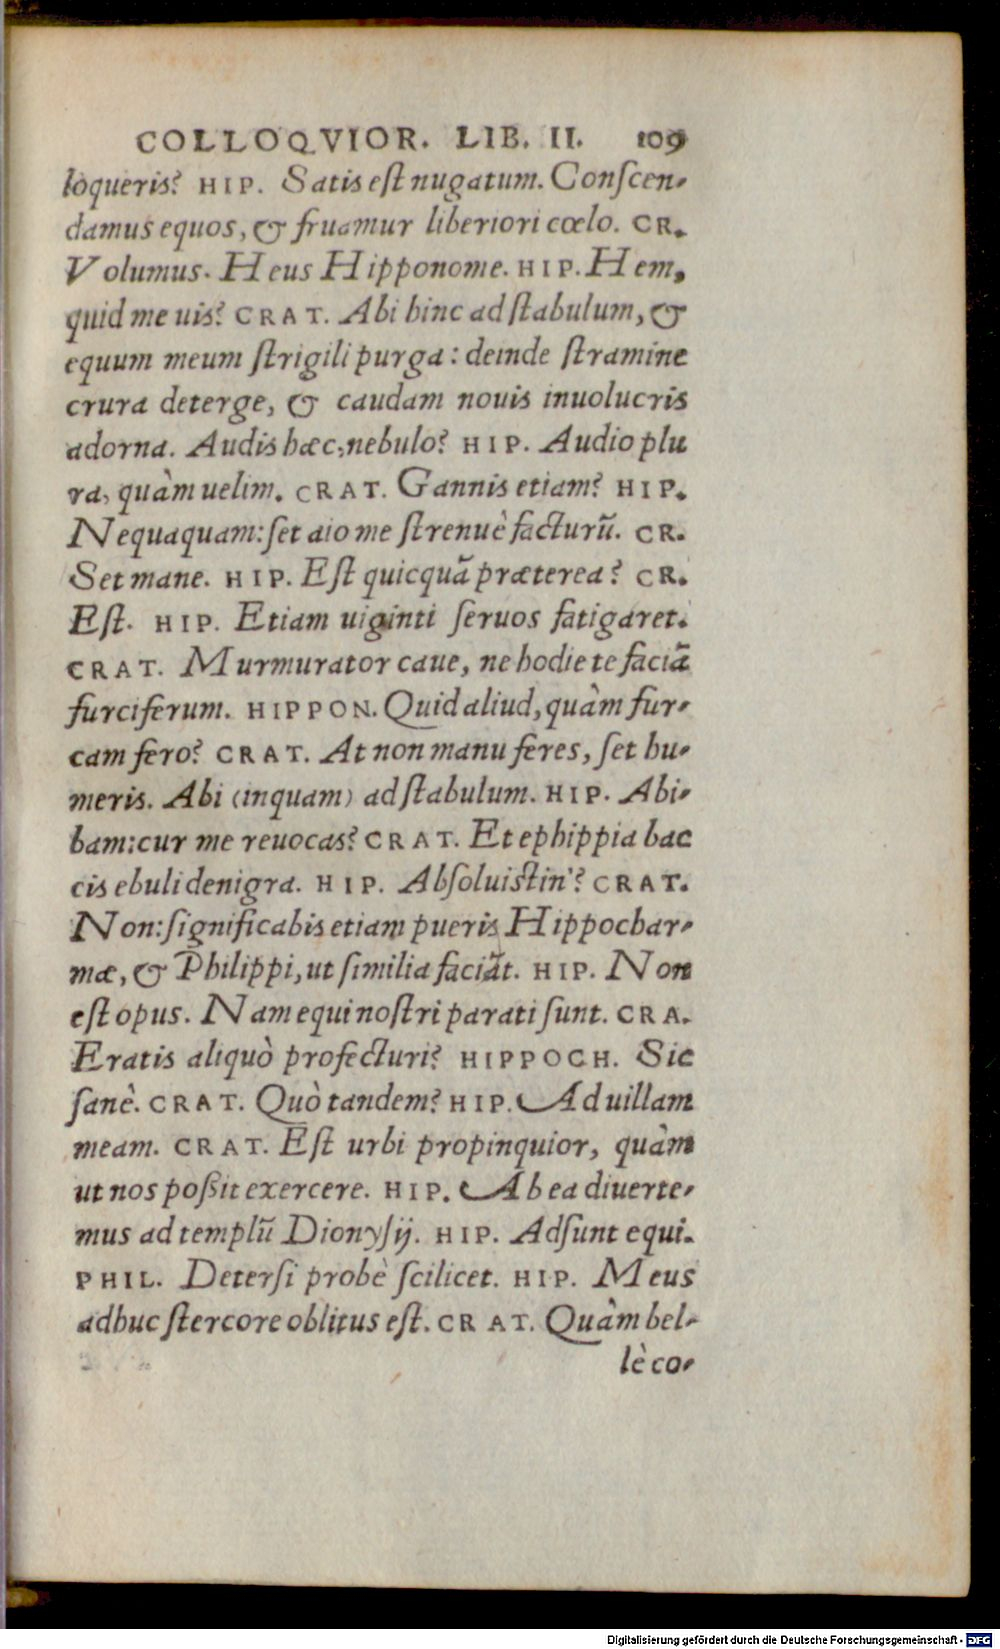 COLLOQVIOR. LIB. II. 109
loqueris? HIP. Satis est nugatum. Conscen-
damus equos, & fruamur liberiori cœlo. CR.
Volumus. Heus Hipponome. HIP. Hem,
quid me uis? CRAT. Abi hinc ad stabulum, &
equum meum strigili purga: deinde stramine
crura deterge, & caudam nouis inuolucris
adorna. Audis hæc, nebulo? HIP. Audio plu
ra, quàm uelim. CRAT. Gannis etiam? HIP.
Nequaquam: set aio me strenuè facturũ. CR.
Set mane. HIP. Est quicquã præterea? CR.
Est. HIP. Etiam uiginti seruos fatigaret.
CRAT. Murmurator caue, ne hodie te faciã
furciferum. HIPPON. Quid aliud, quàm fur-
cam fero? CRAT. At non manu feres, set hu-
meris. Abi (inquam) ad stabulum. HIP. Abi-
bam: cur me reuocas? CRAT. Et ephippia bac
cis ebuli denigra. HIP. Absoluistin'? CRAT.
Non: significabis etiam pueris Hippochar-
mæ, & Philippi, ut similia faciãt. HIP. Non
est opus. Nam equi nostri parati sunt. CRA.
Eratis aliquò profecturi? HIPPOCH. Sic
sanè. CRAT. Quò tandem? HIP. Ad uillam
meam. CRAT. Est urbi propinquior, quàm
ut nos poßit exercere. HIP. Ab ea diuerte-
mus ad templũ Dionysij. HIP. Adsunt equi.
PHIL. Detersi probè scilicet. HIP. Meus
adhuc stercore oblitus est. CRAT. Quàm bel-
lè co-
Digitalisierung gefördert durch die Deutsche Forschungsgemeinschaft - DFG